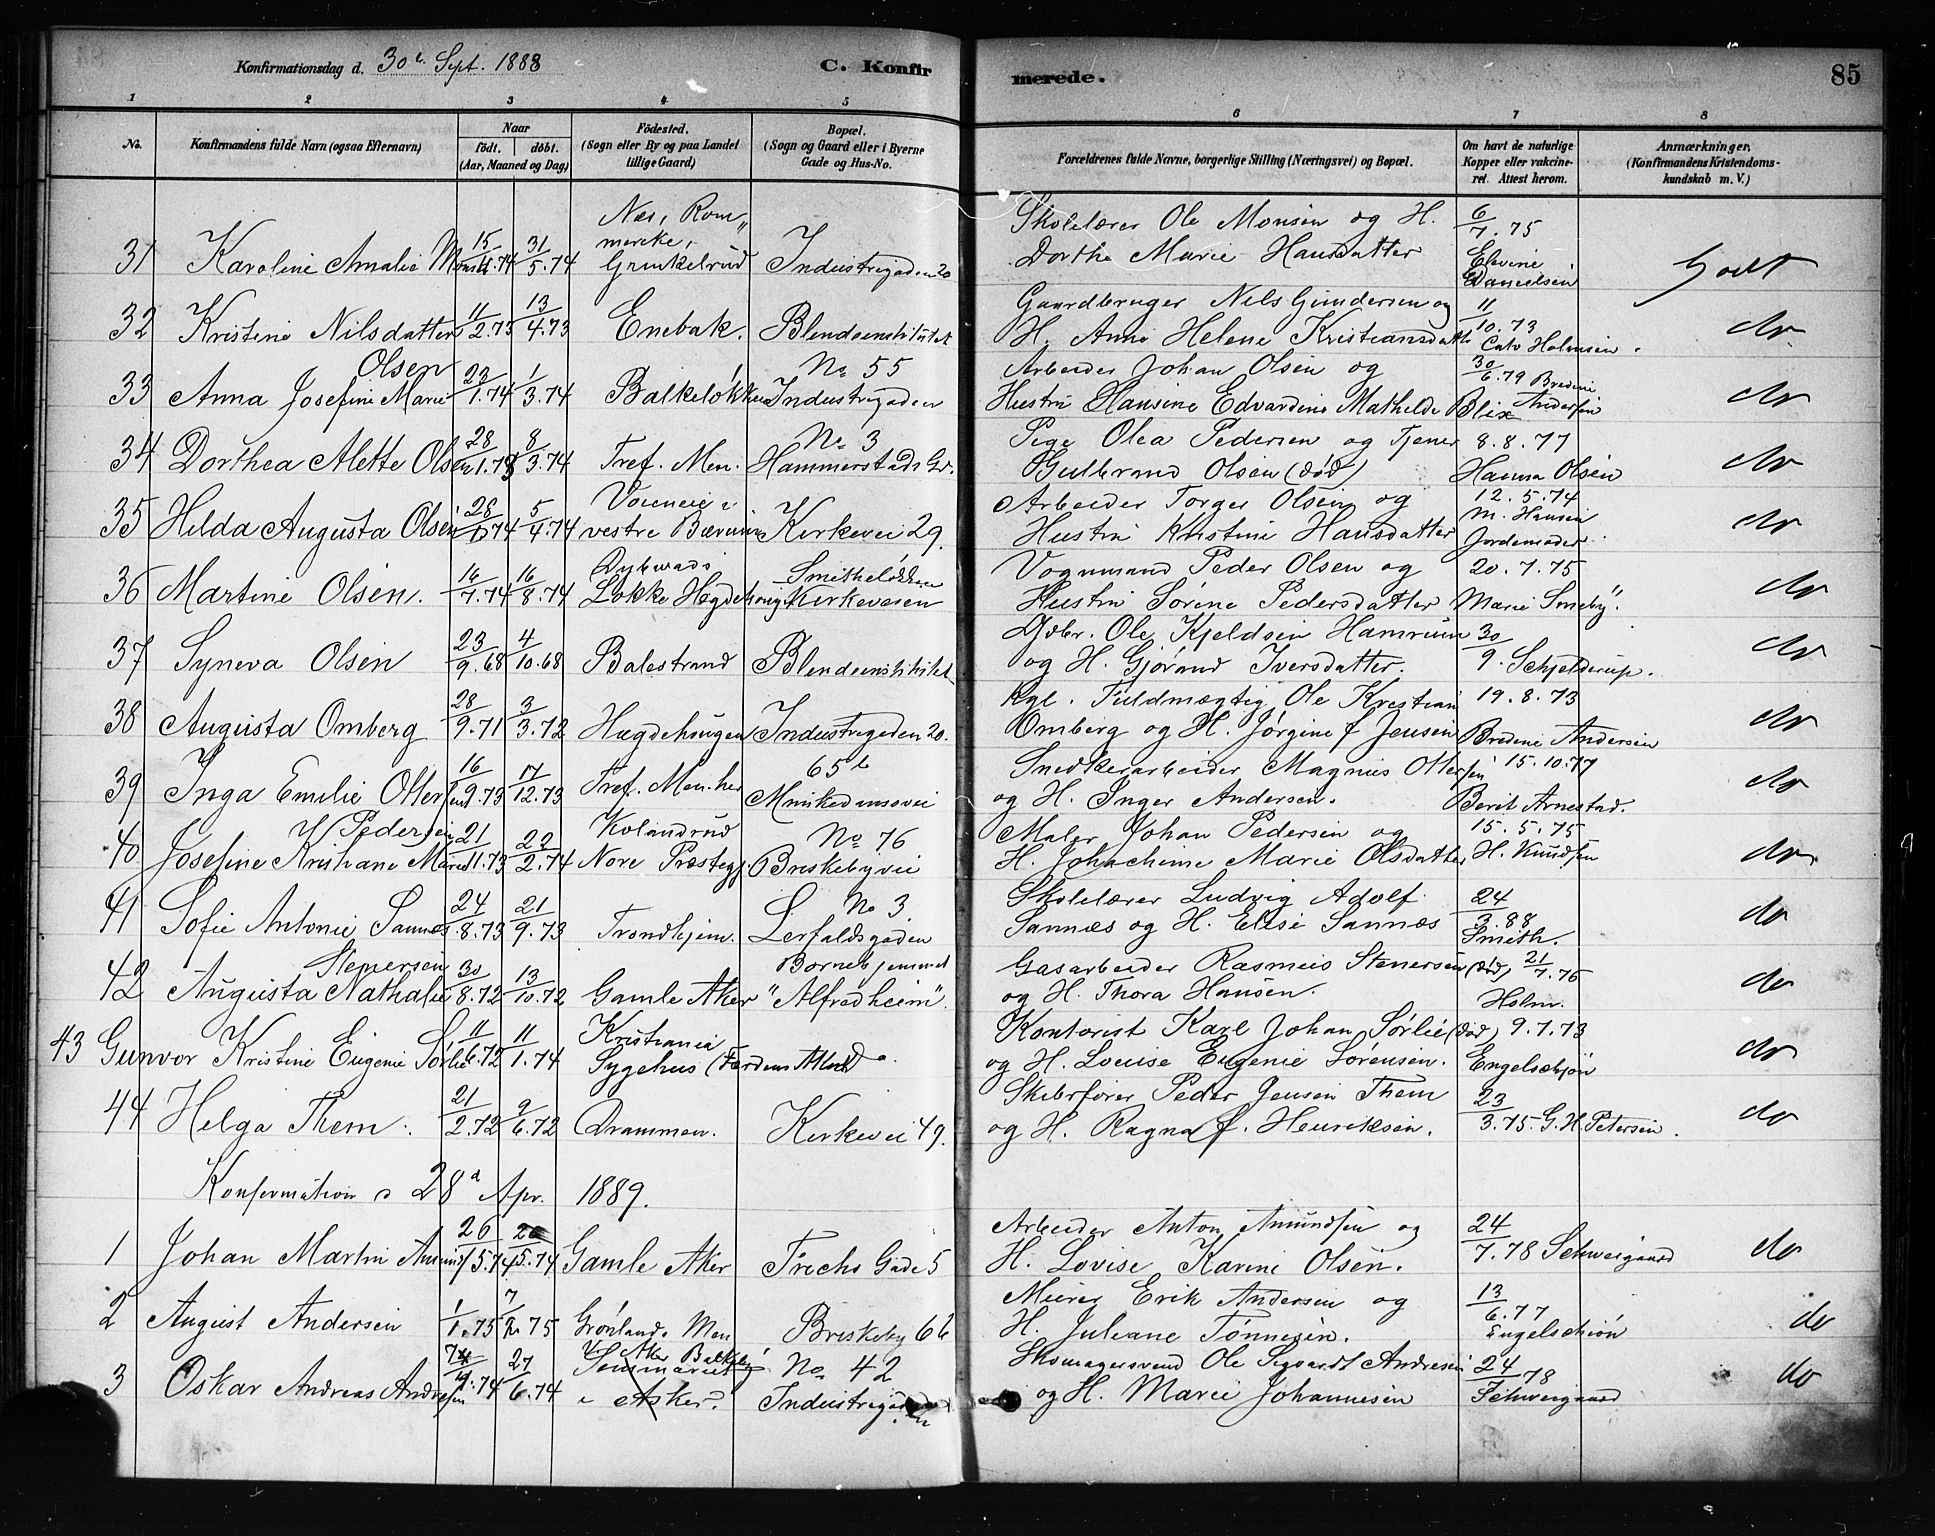 Konfirmationsdag d. 30te Sept. 1888 C. Konfirmerede. 85
1 2 3 4 5 6 7 8
No. Konfirmandens fulde Navn (ogsaa Efternavn) Naar født. døbt. (Aar, Maaned og Dag) Fødested. (Sogn eller By og paa Landet tillige Gaard) Bopæl. (Sogn og Gaard eller i Byerne Gade og Hus-No. Forældrenes fulde Navne, borgerlige Stilling (Næringsvei) og Bopæl. Om havt de naturlige Kopper eller vakcineret. Attest herom. Anmærkninger, (Konfirmandens Kristendomskundskab m. V.)
31 Karoline Amalie Monsen 15/4.74 31/5.74 Næs, Rommerike, Grinkelrud Industrigaden 20 Skolelærer Ole Monsen og H. Dorthe Marie Hansdatter 6/7.75 Elevine Danielsen Godt
32 Kristine Nilsdatter 11/2.73 13/4.73 Enebak. Blendeinstitutet Gaardbruger Nils Gundersen og H. Anne Helene Kristiansdatter 11/10.73 Cato Holmsen. do
33 Anna Josefine Marie Olsen 23/1.74 1/3.74 Balkeløkken No 55 Industrigaden Arbeider Johan Olsen og Hustru Hansine Edvardine Mathilde Blix 30/6.79 Bredine Andersen do
34 Dorthea Alette Olsen 28/1.73 8/3.74 Tref. Men. No 3 Hammerstads Gd. Pige Olea Pedersen og Tjener Gulbrand Olsen (død) 8.8.77 Hanna Olsen do
35 Hilda Augusta Olsen 28/1.74 5/4.74 vestre Bærum Kirkevei 29. Arbeider Torger Olsen og Hustru Kristine Hansdatter 12.5.74 M. Hansen Jordemoder. do
36 Martine Olsen. 16/7.74 16/8.74 Dybwads Løkke Hægdehaugen Smitheløkken Kirkeveien Vognmand Peder Olsen og Hustru Sørine Pedersdatter 20.7.75 Marie Smeby. do
37 Syneva Olsen 23/9.68 4/10.68 Balestrand Blendeinstitutet Gdbr. Ole Kjeldsen Hamrum og H. Gjørand Iversdatter. 30/9. Schjelderup. do
38 Augusta Omberg 28/9.71 3/3.72 Hægdehaugen Industrigaden 20. Kgl. Fuldmægtig Ole Kristian Omberg og H. Jørgine f Jensen 19.8.73 Bredine Andersen do
39 Inga Emilie Ottersen 16/9.73 17/12.73 Tref. Men. her 65b Munkedamsvei Snedkerarbeider Magnus Ottersen og H. Inger Andersen. 15.10.77 Berit Arnestad. do
40 Josefine Kristiane Marie Pedersen 21/11.73 22/2.74 Kolandrud Nore Præstegj. No 76 Briskebyvei Maler Johan Pedersen og H. Johachime Marie Olsdatter 15.5.75 H. Knudsen do.
41 Sofie Antonie Sannæs 24/8.73 21/9.73 Trondhjem. No 3. Lerfaldsgaden Skolelærer Ludvig Adolf Sannæs og H. Elise Sannæs 24/3.88 Smith. do
42 Augusta Nathalie Stenersen 30/8.72 13/10.72 Gamle Aker Børnehjemmet "Alfredheim". Gasarbeider Rasmus Stenersen (død) og H. Thora Hansen. 21/7.76 Holm. do
43 Gunvor Kristine Eugenie Sørlie 11/6.72 11/1.74 Kristiania Sygehus do. Kontorist Karl Johan Sørlie (død) og H. Louise Eugenie Sørensen. 9.7.73 Engelschjøn do
44 Helga Them. 21/2.72 9/6.72 Drammen. Kirkevei 49. Skibsfører Peder Jensen Them og H. Ragna f. Henriksen. 23/3.75. G. H. Petersen. do
Konfirmation d 28d Apr. 1889.
1 Johan Martin Amundsen 26/5.74 Gamle Aker Frichs Gade 5 Arbeider Anton Amundsen og H. Lovise Karine Olsen. 24/7.78 Schweigaard do
2 August Andersen 1/1.75 7/2.75 Grønlands Men Briskeby 6b Murer Erik Andersen og H. Juliane Tønnesen. 13/6.77 Engelschiøn do
3 Oskar Andreas Andresen 27/6.74 V. Aker Balkeby Seminariet i Asker. No 42 Industrigaden Skomagersvend Ole Sigvardt Andresen og H. Marie Johannesen 24/78 Schweigaard do